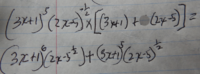 (3x+1)⁵(2x-5)^(-1/2) × [(3x+1) + (2x-5)] =
(3x+1)⁶(2x-5)^(-1/2) + (3x+1)⁵(2x-5)^(1/2)